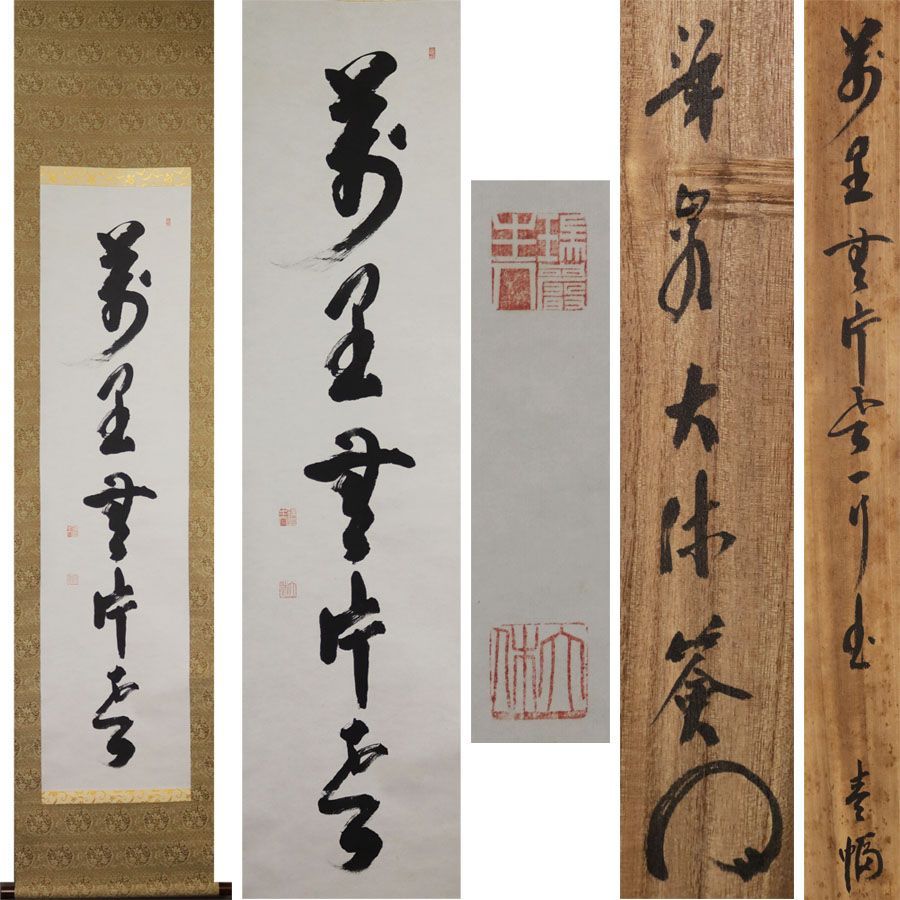 萬里無片雲
萬里無片雲
大休
大休簽
萬里無片雲一行書 壹幅